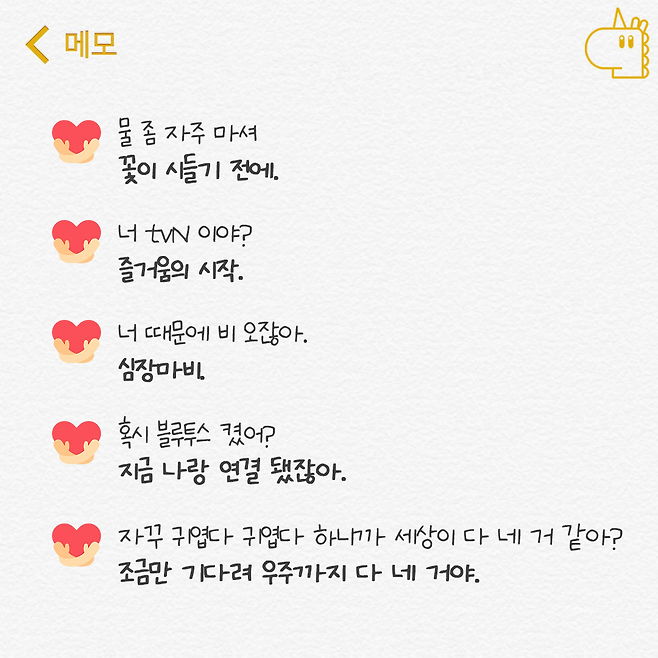 메모
물 좀 자주 마셔
꽃이 시들기 전에.
너 tvN 이야?
즐거움의 시작.
너 때문에 비 오잖아.
심장마비.
혹시 블루투스 켰어?
지금 나랑 연결 됐잖아.
자꾸 귀엽다 귀엽다 하니까 세상이 다 네 거 같아?
조금만 기다려 우주까지 다 네 거야.